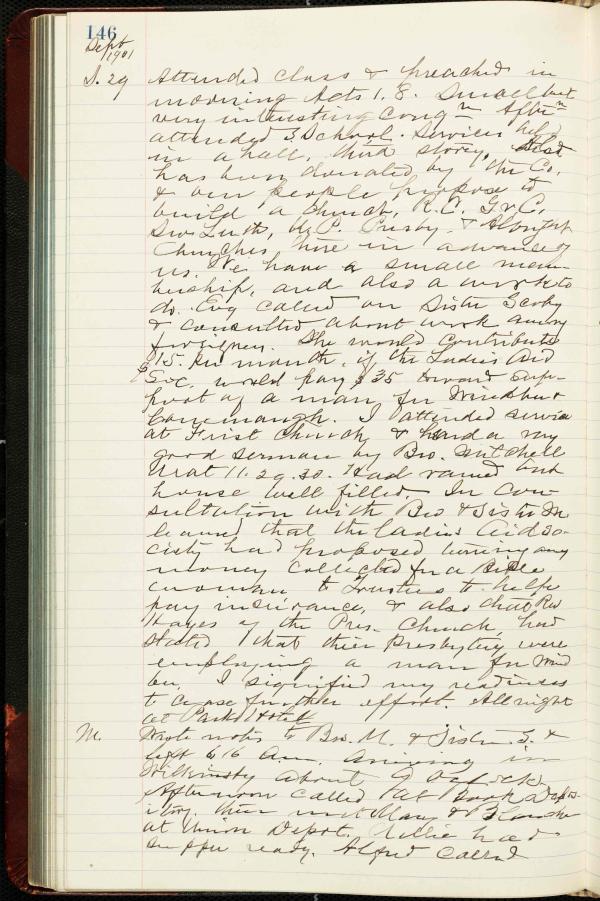 146
Sept
1901
S. 29 Attended class & preached in
morning Acts 1. 8. Small but
very interesting cong-n After-n
attended S School. Services held
in a hall, third storey,
has been donated by the Co.
& our people propose to
build a church, R.C., Gr C.
Swe Luth, U. P. Presby. & Albright
Churches here in advance of
us. We have a small mem-
bership, and also a work to
do. Evg called on Sister
& consulted about work among
foreigners. She would contribute
$15. per month, if the Ladies Aid
Soc. would pay $35 toward sup-
port of a man for Windber &
Conemaugh. I attended service
at First Church & heard a very
good sermon by Bro. Mitchell
Mat 11. 29. 30. Had rained but
house well filled. In con-
sultation with Bro & Sister M
learned that the ladies Aid So-
ciety had proposed turning any
money collected for a Bible
woman to Trustees to help
pay insurance, & also that Rev
Hayes of the Pres. Church had
stated that their Presbytery were
employing a man for Wind
ber. I signified my readiness
to cease further effort. All night
at Park Hotel
M. Wrote notes to Bro. M. & Sister S. &
left 6 16 a.m. arriving in
Wilkinsbg about 9 oclock.
Afternoon called at Book Depos-
itory, then met Mary & Blanche
at Union Depot. Nellie had
supper ready. Alfred called